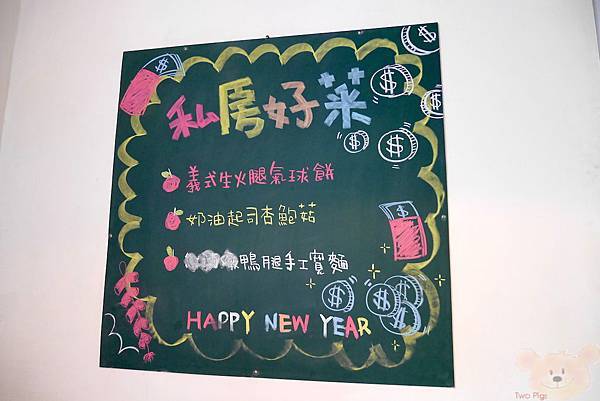 私房好菜
義式生火腿氣球餅
奶油起司杏鮑菇
鴨腿手工寬麵
HAPPY NEW YEAR
Two Pigs